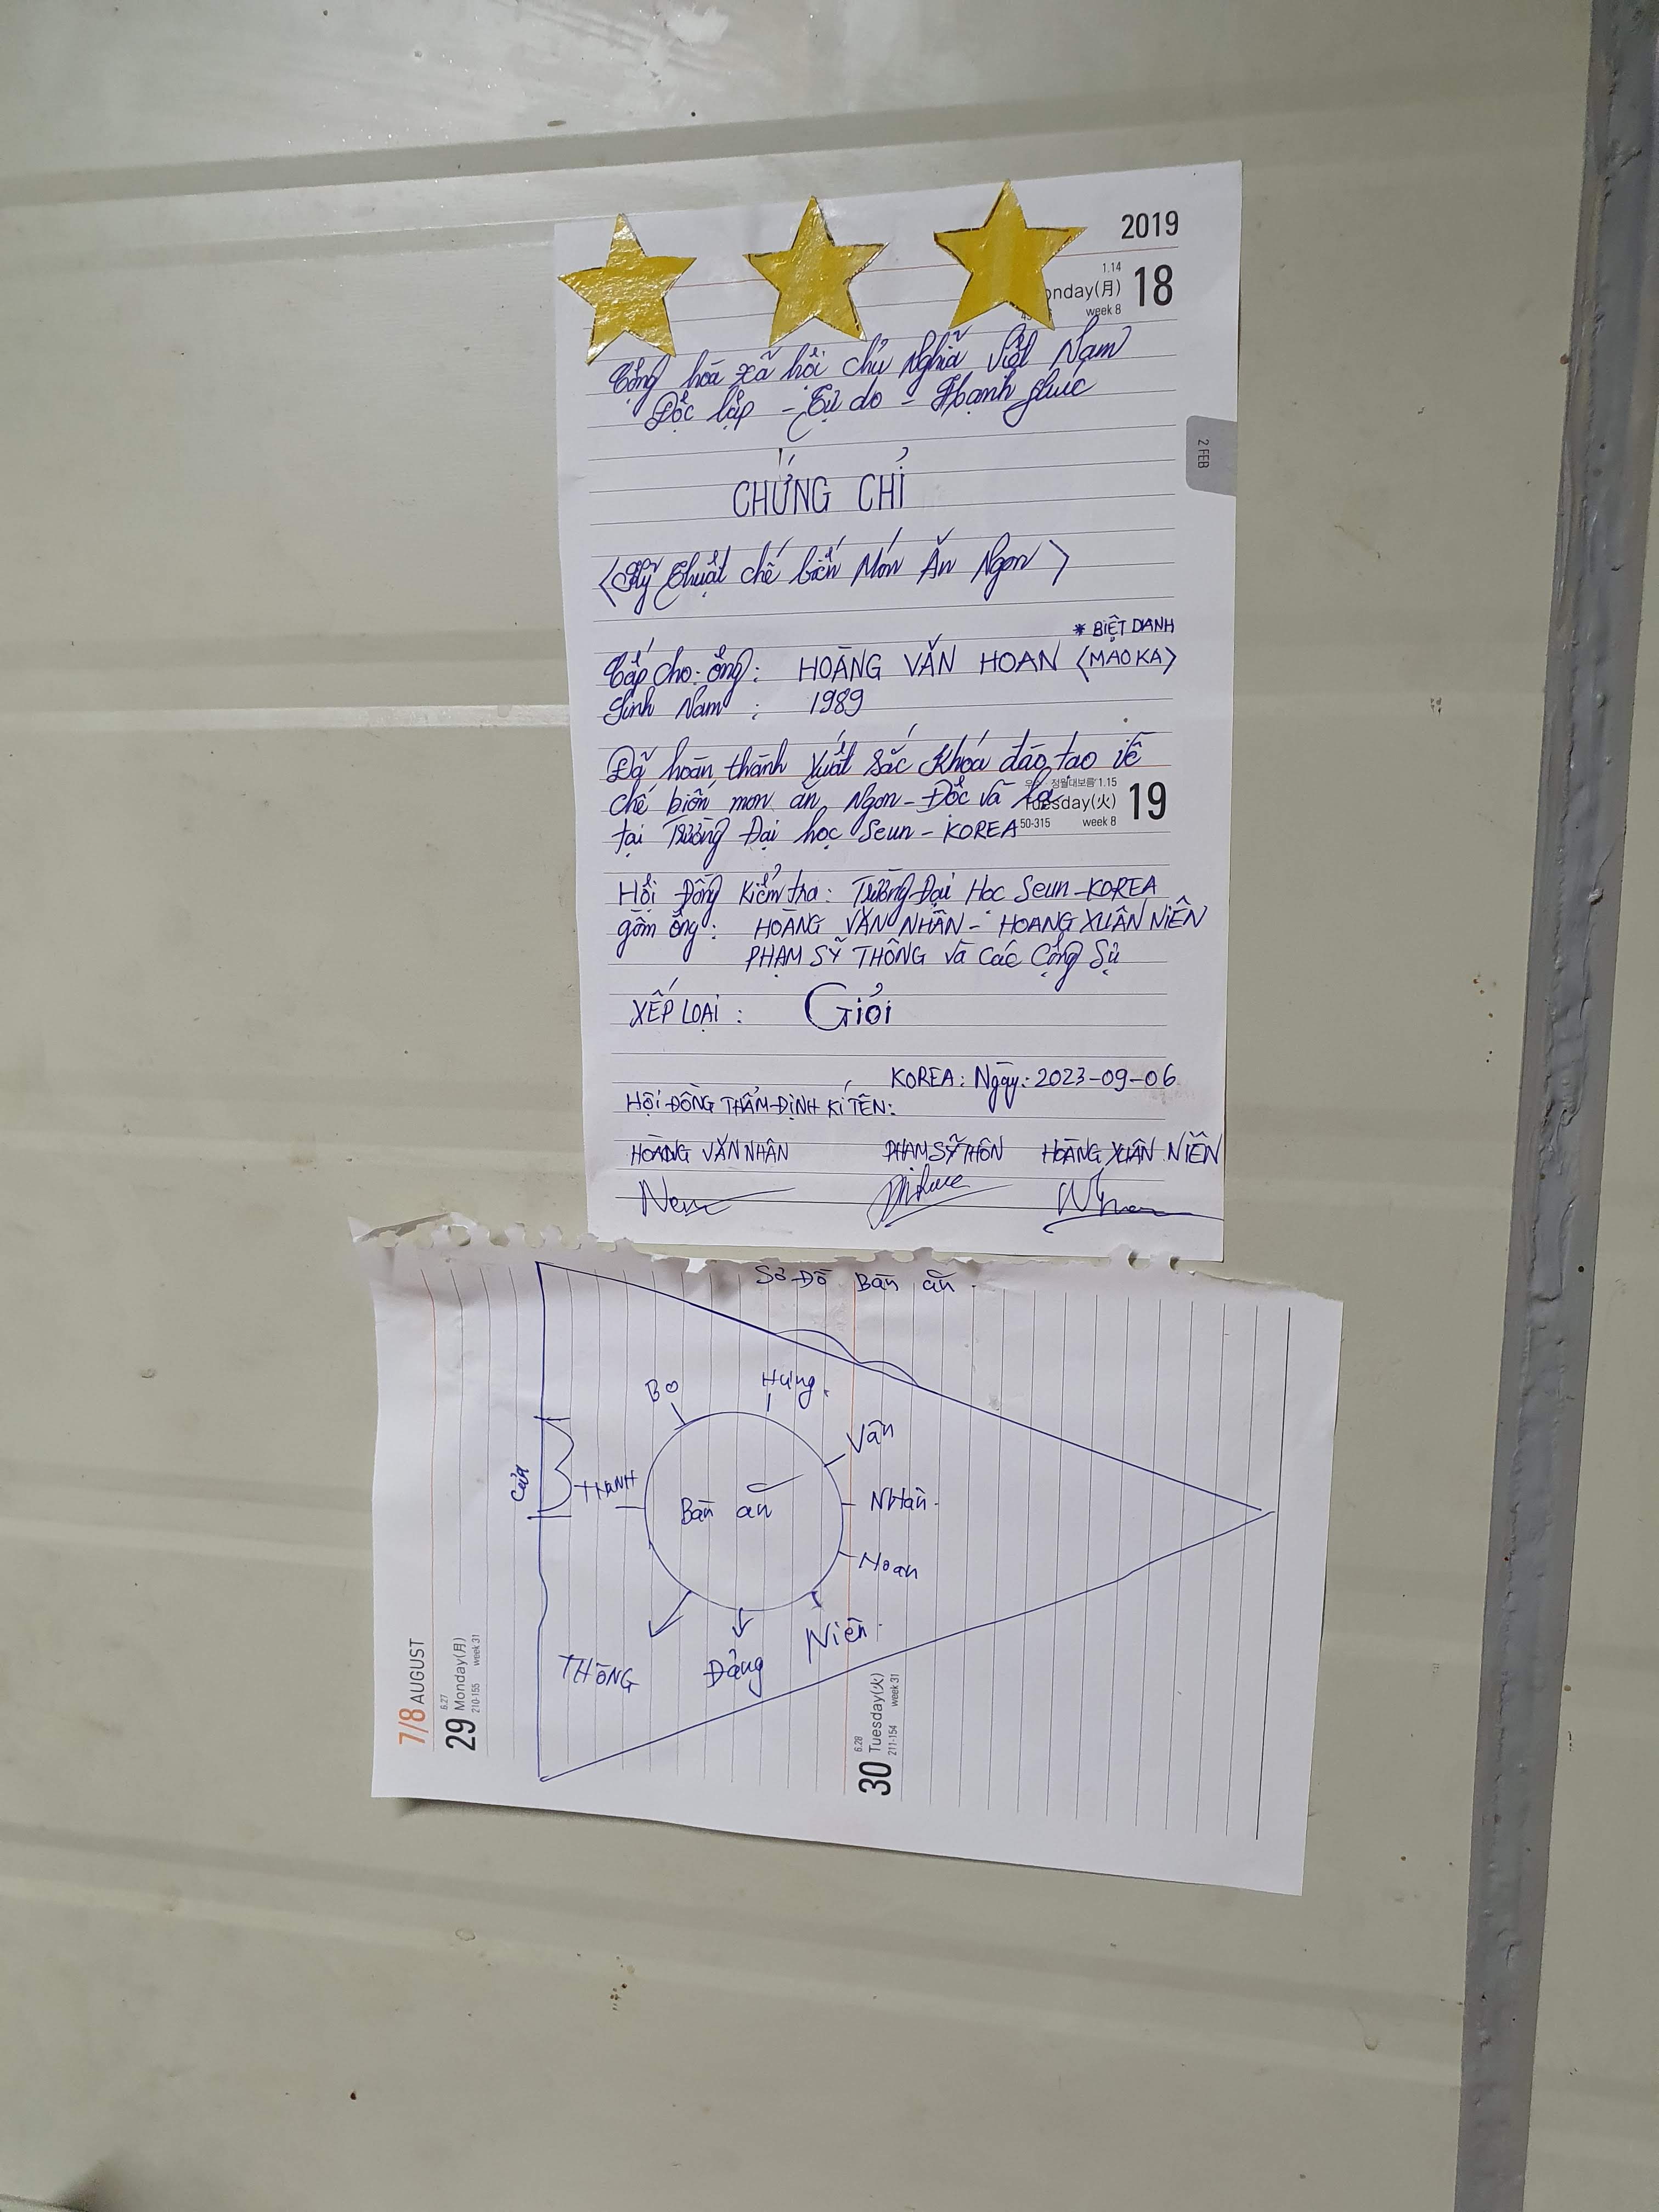 2019
1.14
onday(月) 18
week 8
Cộng hòa xã hội chủ Nghĩa Việt Nam
Độc lập - Tự do - Hạnh phúc
2 FEB
CHỨNG CHỈ
<Kỹ thuật chế biến Món Ăn Ngon>
* BIỆT DANH
Cấp cho: ông: HOÀNG VĂN HOAN <MAOKA>
Sinh Năm : 1989
Đã hoàn thành xuất sắc Khóa đào tạo về
정월대보름 1.15
chế biến mon ăn Ngon - Độc và lạ
Tuesday(火) 19
50-315 week 8
tại Trường Đại học Seun - KOREA
Hội Đồng Kiểm tra: Trường Đại Hoc Seun-KOREA
gồm ông: HOÀNG VĂN NHÂN - HOANG XUÂN NIÊN
PHẠM SỸ THÔNG và các Cộng Sự
XẾP LOẠI : Giỏi
KOREA: Ngày: 2023-09-06
HỘI ĐỒNG THẨM ĐỊNH KÍ TÊN:
HOÀNG VĂN NHÂN PHẠM SỸ THÔN HOÀNG XUÂN NIÊN
Sơ Đồ Bàn ăn
Bo
Hưng
Vân
Cửa
THANH
Bàn ăn
NHân
Hoan
Niên
THÔNG
Đảng
7/8 AUGUST
6.27
29 Monday(月)
210-155 week 31
6.28
30 Tuesday(火)
211-154 week 31